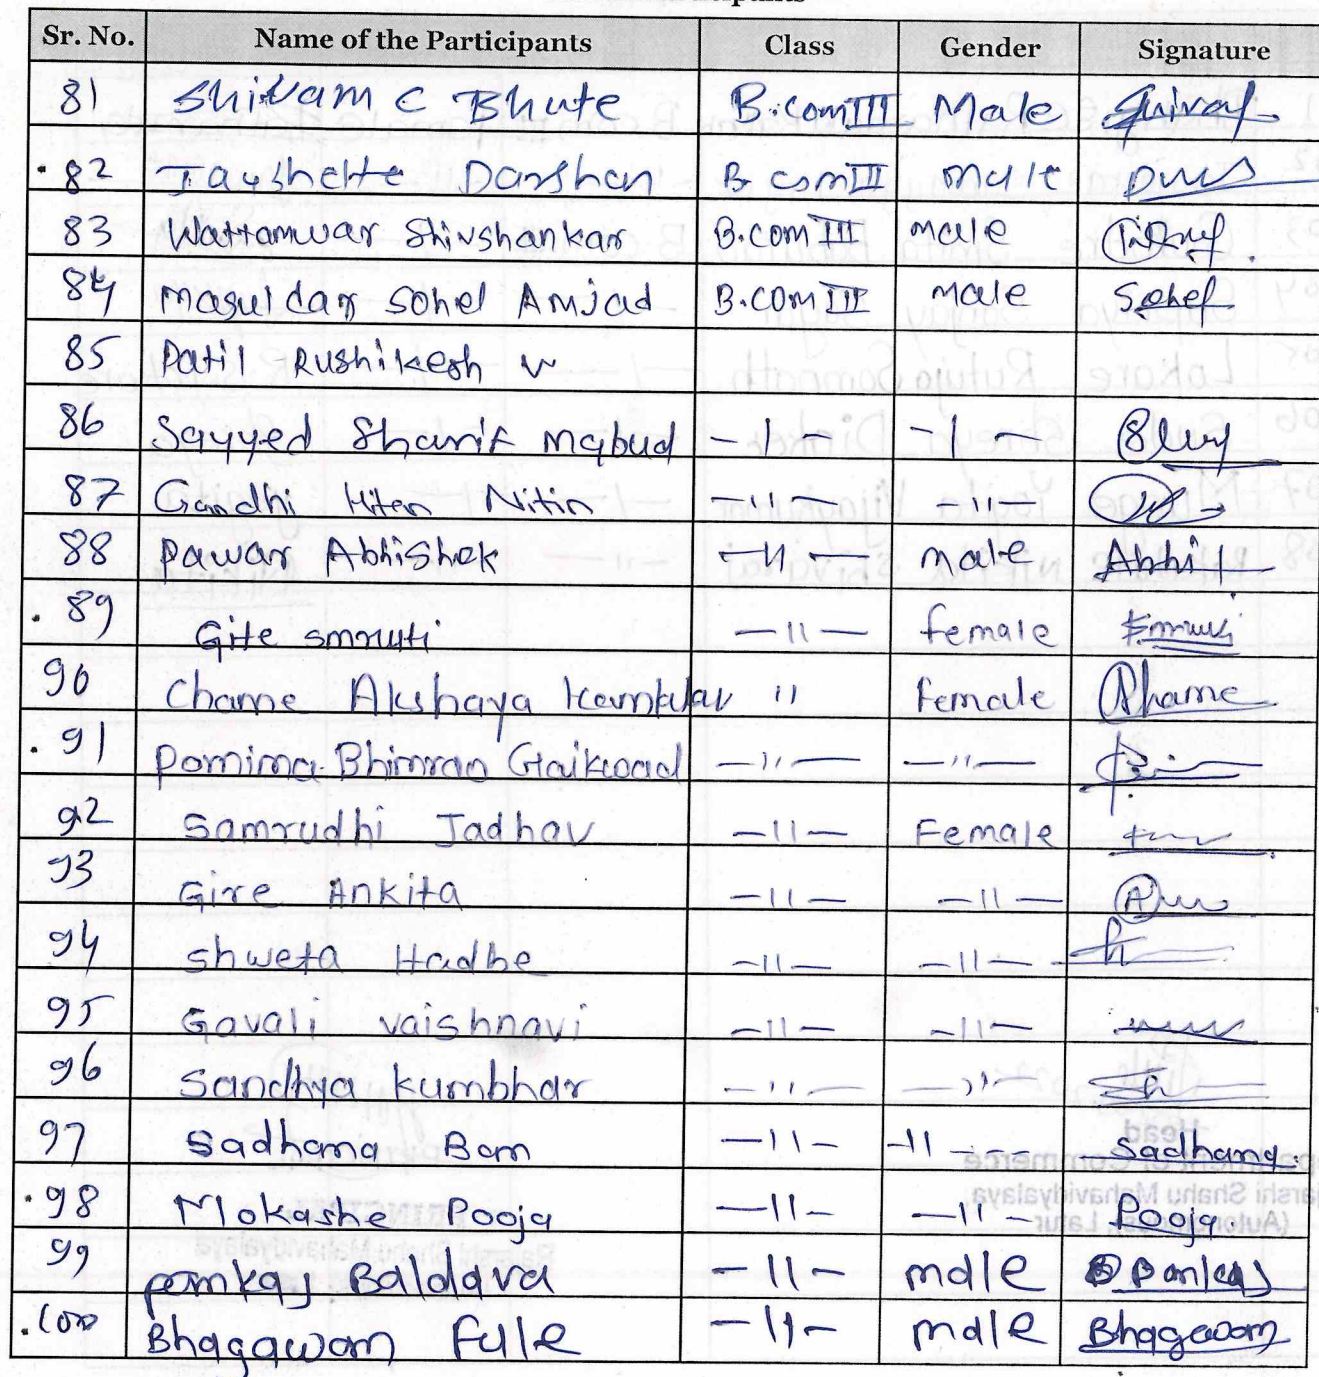 Sr. No. Name of the Participants Class Gender Signature
81 Shivam C Bhute B.com III Male
82 Jayshette Darshan B com III male
83 Wattamwar Shivshankar B.com III male
84 Masuldar Sohel Amjad B.com III male Sohel
85 Patil Rushikesh V
86 Sayyed Sharif Mabud -1- -1-
87 Gandhi Hiten Nitin -11- -11-
88 Pawar Abhishek -11- male Abhi
89 Gite smruti -11- female
90 Chame Akshaya 11 Female Chame
91 Pornima Bhimrao Gaikwad -11- -11-
92 Samrudhi Jadhav -11- Female
93 Gire Ankita -11- -11-
94 shweta Hadbe -11- -11-
95 Gavali vaishnavi -11- -11-
96 Sandhya kumbhar -11- -11-
97 Sadhana Ban -11- -11- Sadhana.
98 Mokashe Pooja -11- -11- Pooja
99 pankaj Baldava -11- male Pankaj
100 Bhagawan Fule -11- male Bhagawan